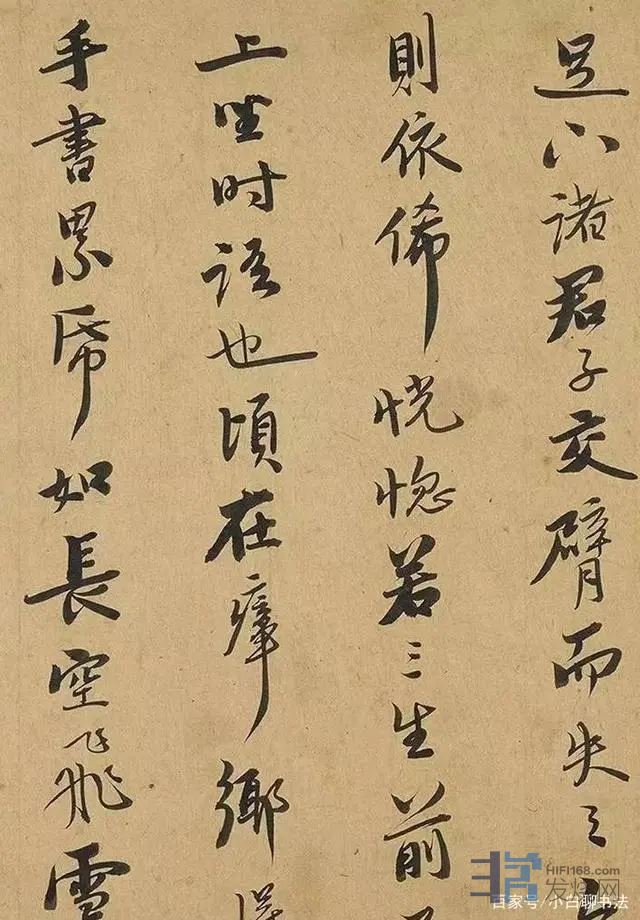 足下諸君子交臂而失之
則依俙恍惚若三生前
上坐时语也頃在瘴鄉
手書累帋如長空飞飛雪
HIFI168.com
发烧网
百家号/小白聊书法